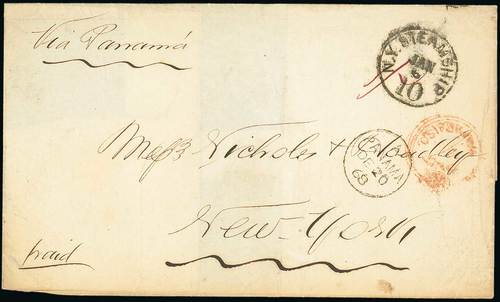 Via Panamá
N.Y. STEAMSHIP
JAN
6
10
Messrs Nicholes &
PANAMA
DE 20
68
New-York
paid